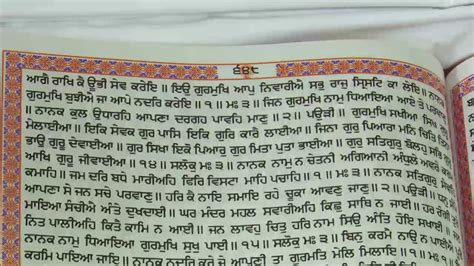 ੬੪੮
ਆਗੈ ਰਾਖਿ ਕੈ ਊਭੀ ਸੇਵ ਕਰੇਇ ॥ ਇਉ ਗੁਰਮੁਖਿ ਆਪੁ ਨਿਵਾਰੀਐ ਸਭੁ ਰਾਜੁ ਸ੍ਰਿਸਟਿ ਕਾ ਲੇਇ ॥ ਨਾਨਕ
ਗੁਰਮੁਖਿ ਬੁਝੀਐ ਜਾ ਆਪੇ ਨਦਰਿ ਕਰੇਇ ॥ ੧ ॥ ਮਃ ੩ ॥ ਜਿਨ ਗੁਰਮੁਖਿ ਨਾਮੁ ਧਿਆਇਆ ਆਏ ਤੇ ਪਰਵਾਣੁ
॥ ਨਾਨਕ ਕੁਲ ਉਧਾਰਹਿ ਆਪਣਾ ਦਰਗਹ ਪਾਵਹਿ ਮਾਣੁ ॥ ੨ ॥ ਪਉੜੀ ॥
ਮੇਲਾਈਆ ॥ ਇਕਿ ਸੇਵਕ ਗੁਰ ਪਾਸਿ ਇਕਿ ਗੁਰਿ ਕਾਰੈ ਲਾਈਆ ॥ ਜਿਨਾ ਗੁਰੁ ਪਿਆਰਾ ਮਨਿ ਚਿਤਿ ਤਿਨਾ
ਭਾਉ ਗੁਰੂ ਦੇਵਾਈਆ ॥ ਗੁਰ ਸਿਖਾ ਇਕੋ ਪਿਆਰੁ ਗੁਰ ਮਿਤਾ ਪੁਤਾ ਭਾਈਆ ॥ ਗੁਰੁ ਸਤਿਗੁਰੁ ਬੋਲਹੁ ਸਭਿ
ਗੁਰੁ ਆਖਿ ਗੁਰੂ ਜੀਵਾਈਆ ॥ ੧੪ ॥ ਸਲੋਕੁ ਮਃ ੩ ॥ ਨਾਨਕ ਨਾਮੁ ਨ ਚੇਤਨੀ ਅਗਿਆਨੀ ਅੰਧੁਲੇ ਅਵਰੇ ਕਰਮ
ਕਮਾਹਿ ॥ ਜਮ ਦਰਿ ਬਧੇ ਮਾਰੀਅਹਿ ਫਿਰਿ ਵਿਸਟਾ ਮਾਹਿ ਪਚਾਹਿ ॥ ੧ ॥ ਮਃ ੩ ॥ ਨਾਨਕ ਸਤਿਗੁਰੁ ਸੇਵਹਿ
ਆਪਣਾ ਸੇ ਜਨ ਸਚੇ ਪਰਵਾਣੁ ॥ ਹਰਿ ਕੈ ਨਾਇ ਸਮਾਇ ਰਹੇ ਚੂਕਾ ਆਵਣੁ ਜਾਣੁ ॥ ੨ ॥ ਪਉੜੀ ॥
ਮਾਇਆ ਸੰਚੀਐ ਅੰਤੇ ਦੁਖਦਾਈ ॥ ਘਰ ਮੰਦਰ ਮਹਲ ਸਵਾਰੀਅਹਿ ਕਿਛੁ ਸਾਥਿ ਨ ਜਾਈ ॥ ਹਰ ਰੰਗੀ
ਨਿਤ ਪਾਲੀਅਹਿ ਕਿਤੈ ਕਾਮਿ ਨ ਆਈ ॥ ਜਨ ਲਾਵਹੁ ਚਿਤੁ ਹਰਿ ਨਾਮ ਸਿਉ ਅੰਤਿ ਹੋਇ ਸਖਾਈ ॥
ਨਾਨਕ ਨਾਮੁ ਧਿਆਇਆ ਗੁਰਮੁਖਿ ਸੁਖੁ ਪਾਈ ॥ ੧੫ ॥ ਸਲੋਕੁ ਮਃ ੩ ॥ ਬਿਨੁ ਕਰਮੈ ਨਾਉ ਨ ਪਾਈਐ
ਕਰਮਿ ਪਾਇਆ ਜਾਇ ॥ ਨਾਨਕ ਨਦਰਿ ਕਰੇ ਜੇ ਆਪਣੀ ਤਾ ਗੁਰਮਤਿ ਮੇਲਿ ਮਿਲਾਇ ॥ ੧ ॥